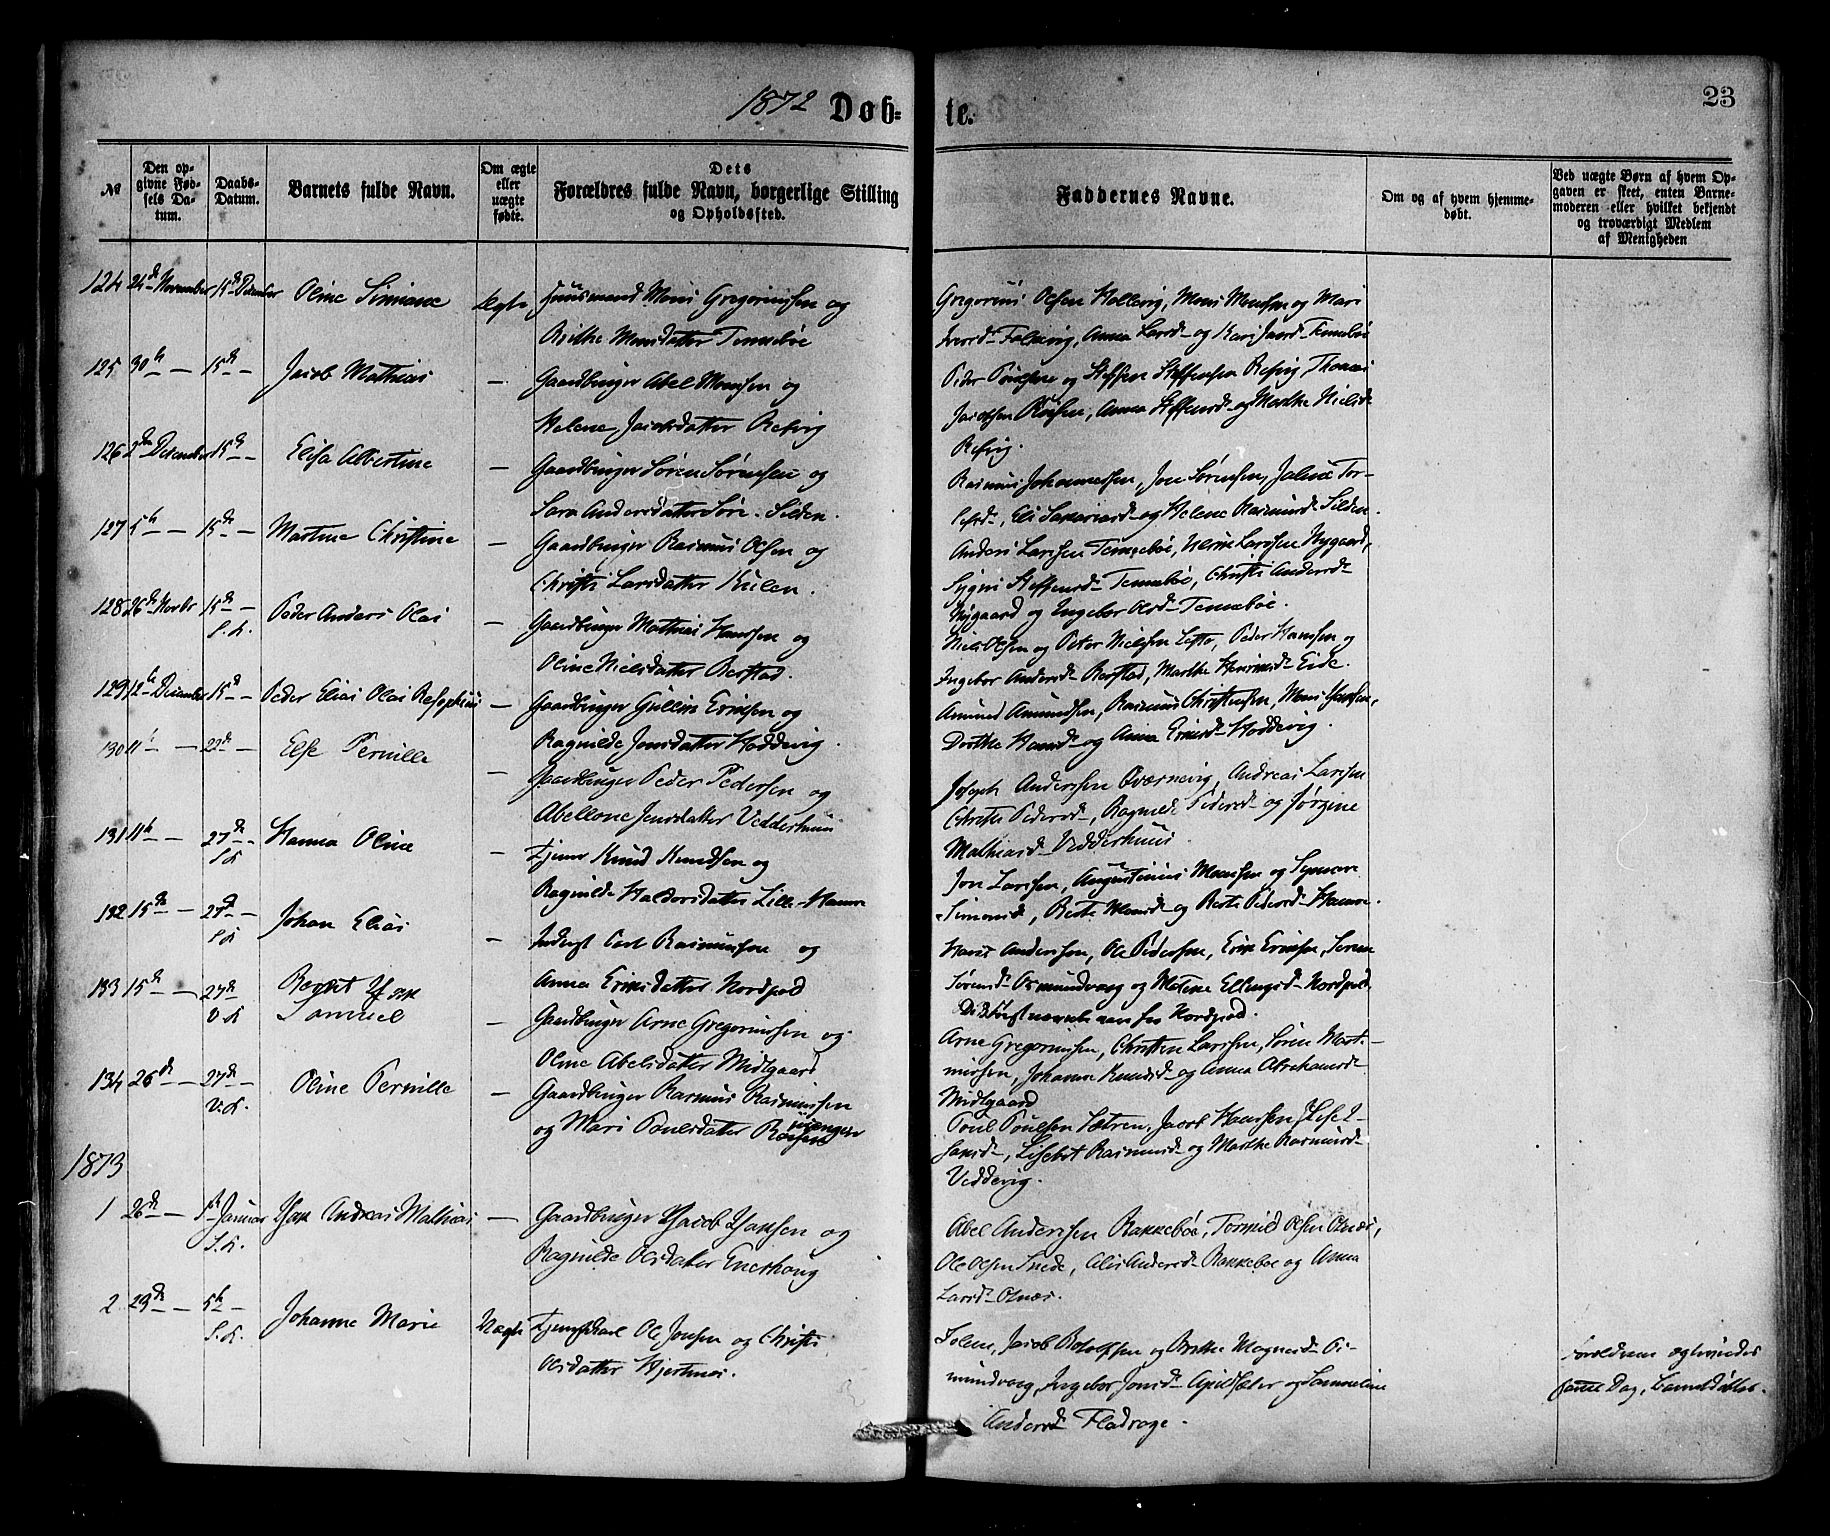 1872 Døb-
te.
23
№
Den op-
givne Fød-
sels Da-
tum.
Daabs-
Datum.
Barnets fulde Navn.
Om ægte
eller
uægte
fødte.
Dets
Forældres fulde Navn, borgerlige Stilling
og Opholdssted.
Faddernes Navne.
Om og af hvem hjemme-
døbt.
Ved uægte Børn af hvem Op-
gaven er skeet, enten Barne-
moderen eller hvilket bekjendt
og troværdigt Medlem
af Menigheden
124 24de November 15de December Oline Simiane Ægte Huusmand Mons Gregoriussen og
Brithe Monsdatter Tennebøe
Gregorius Olsen Hellevig, Mons Monssen og Mari
Iversd. Falkevig, Anna Larsd. og Kari Jacobsd. Tennebøe
125 30te — 15de — Jacob Mathias — Gaardbruger Abel Monsen og
Helene Jacobsdatter Refvig
Peder Poulsen og Steffen Steffensen Refvig Thomas
Jacobsen, Anna Steffensd. og Marthe Nielsd.
Refvig.
126 2den December 15de — Elisa Albertine — Gaardbruger Søren Sørensen og
Sara Andersdatter Søre-Silden.
Rasmus Johannessen, Jon Sørensen, Jaline Tor-
Eli Sakariasd. og Helene Rasmusd. Silden.
127 5te — 15de — Martine Christine — Gaardbruger Rasmus Olsen og
Christi Larsdatter Kulen.
Anders Larssen Tennebøe, Larssen Nygaard,
Sygni Steffensd. Tennebøe, Christi Andersd.
Nygaard og Ingebor Olsd. Tennebøe.
128 26de Novbr 15de — S.K. Peder Anders Olai — Gaardbruger Mathias Hanssen og
Oline Nielsdatter Berstad.
Niels Olsen og Peter Nielsen Lefto, Peder Hanssen og
Ingebor Andersd. Berstad, Marthe Henriksd. Eide.
129 12te December 15de — Peder Elias Olai — Gaardbruger Gullik Eriksen og
Ragnilde Jonsdatter Hoddevig.
Amund Amundsen, Rasmus Christensen, Mons Hanssen,
Dorthe Hansd. og Anna Eriksd. Hoddevig.
130 11te — 22de — Else Pernille — Gaardbruger Peder Pedersen og
Abellone Jensdatter Vedderhuus
Joseph Anderssen Qværnevig, Andreas Larssen
Christi Pedersd., Ragnild Pedersd. og Jørgine
Mathiasd. Vedderhuus.
131 11te — 27de — S.K. Hanna Oline — Tjener Knud Knudsen og
Ragnilde Haldorsdatter Lille-Hamre
Jon Larssen, Augustinus Monssen og
Simonsd., Berte Monsd. og Berte Pedersd. Hamre.
132 15de — 27de — S.K. Johan Elias — Inderst Carl Rasmussen og
Anna Eriksdatter Nordpod
Hans Anderssen, Ole Pedersen, Erik Eriksen,
Sørensd. Osmundvaag og Malene Ellingsd. Nordpod.
133 15de — 27de V.K. Berent Isak
Samuel — Gaardbruger Arne Gregoriussen og
Oline Abelsdatter Midtgaard
Arne Gregoriussen, Christen Larssen, Søren Marti-
nussen, Johanne Knudsd. og Anna Abrahamsd.
Midtgaard
134 26de — 27de — V.K. Oline Pernille — Gaardbruger Rasmus Rasmussen
og Mari Poulsdatter
Poul Poulsen Sætren, Jacob Hanssen, Else I-
saksd., Lisebet Rasmusd. og Marthe Rasmusd.
Vedvig.
1873
1 26de — 1ste Januar S.K. Isak Andreas Mathias — Gaardbruger Jacob Isaksen og
Ragnilde Olsdatter Enerhaug
Abel Anderssen Bakkebøe, Tormod Olsen Osnæs,
Ole Olsen Snede, Alis Andersd. Bakkebøe og Anna
Larsd. Osnæs.
2 29de — 5te — S.K. Johanne Marie Uægte Tjenestkarl Ole Jonsen og Christi
Olsdatter Hjertnæs.
Jacob Rotolfsen og Brithe Magnesd. Os-
mundvaag, Ingebor Jonsd. Apelsæter og Samueline
Andersd. Flatrage.
Forældrene copuleredes
samme Dag, Barnet døbtes.